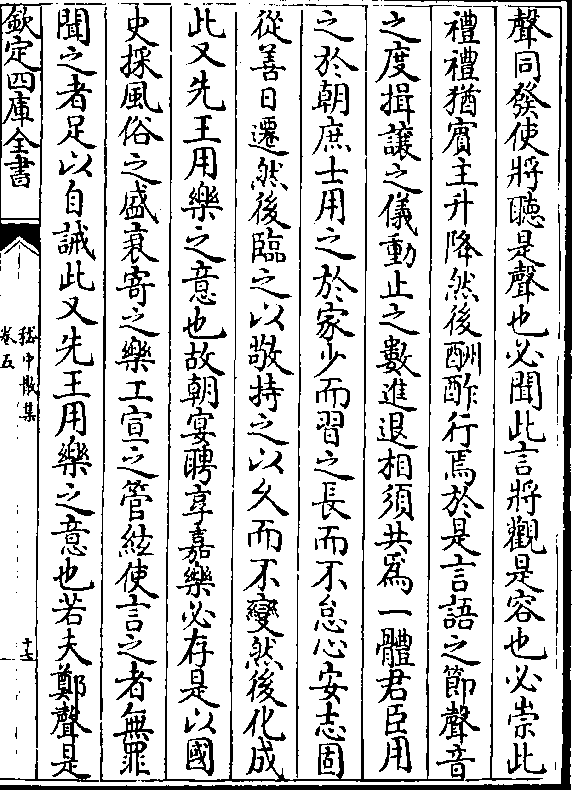 聲同發使將聽是聲也必聞此言將觀是容也必崇此
禮禮猶賓主升降然後酬酢行焉於是言語之節聲音
之度揖讓之儀動止之數進退相須共為一體君臣用
之於朝庶士用之於家少而習之長而不怠心安志固
從善日遷然後臨之以敬持之以久而不變然後化成
此又先王用樂之意也故朝宴聘享嘉樂必存是以國
史採風俗之盛衰寄之樂工宣之管絃使言之者無罪
聞之者足以自誡此又先王用樂之意也若夫鄭聲是
欽定四庫全書
嵇中散集
卷五
十二